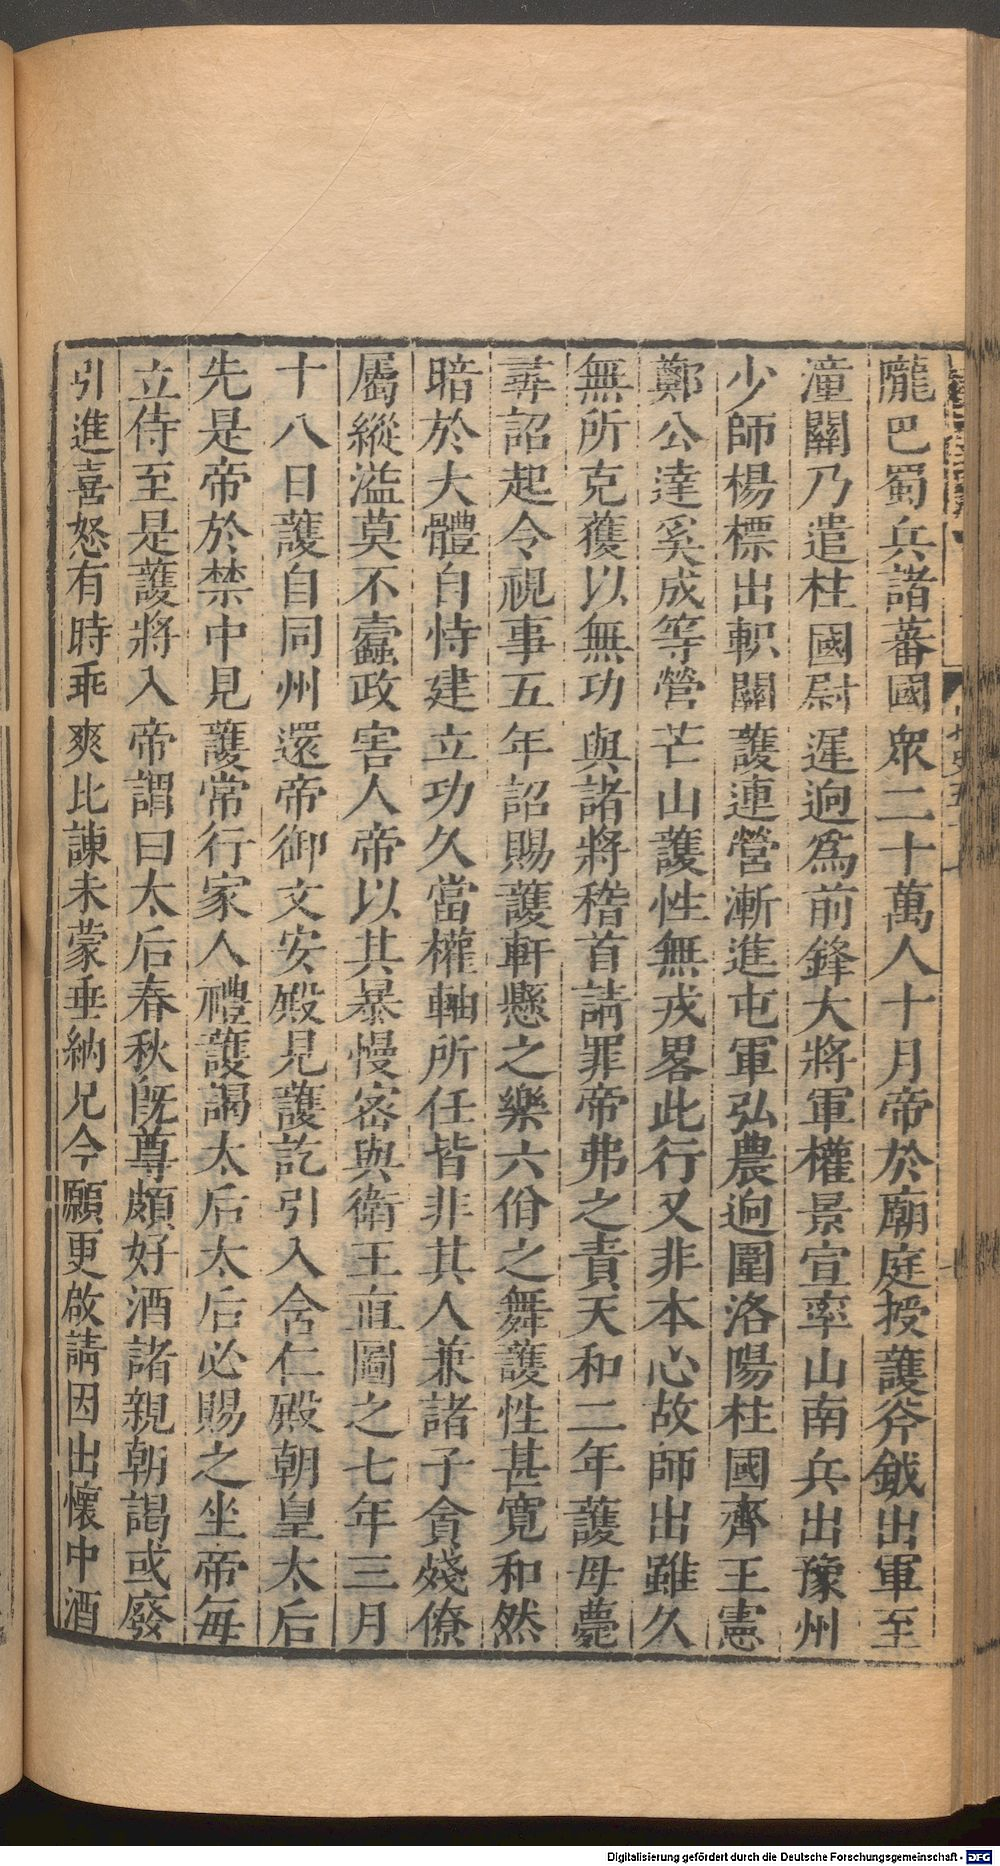 隴巴蜀兵諸蕃國衆二十萬人十月帝於廟庭授護斧鉞出軍至
潼關乃遣柱國尉遲逈爲前鋒大將軍權景宣率山南兵出豫州
少師楊標出軹關護連營漸進屯軍弘農逈圍洛陽柱國齊王憲
鄭公達奚成等營芒山護性無戎畧此行又非本心故師出雖久
無所克獲以無功與諸將稽首請罪帝弗之責天和二年護母薨
尋詔起令視事五年詔賜護軒懸之樂六佾之舞護性甚寛和然
暗於大體自恃建立功久當權軸所任皆非其人兼諸子貪殘僚
屬縱溢莫不蠹政害人帝以其暴慢密與衛王直圖之七年三月
十八日護自同州還帝御文安殿見護訖引入含仁殿朝皇太后
先是帝於禁中見護常行家人禮護謁太后太后必賜之坐帝每
立侍至是護將入帝謂曰太后春秋既尊頗好酒諸親朝謁或廢
引進喜怒有時乖爽比諫未蒙垂納兄今願更啟請因出懷中酒
Digitalisierung gefördert durch die Deutsche Forschungsgemeinschaft - DFG